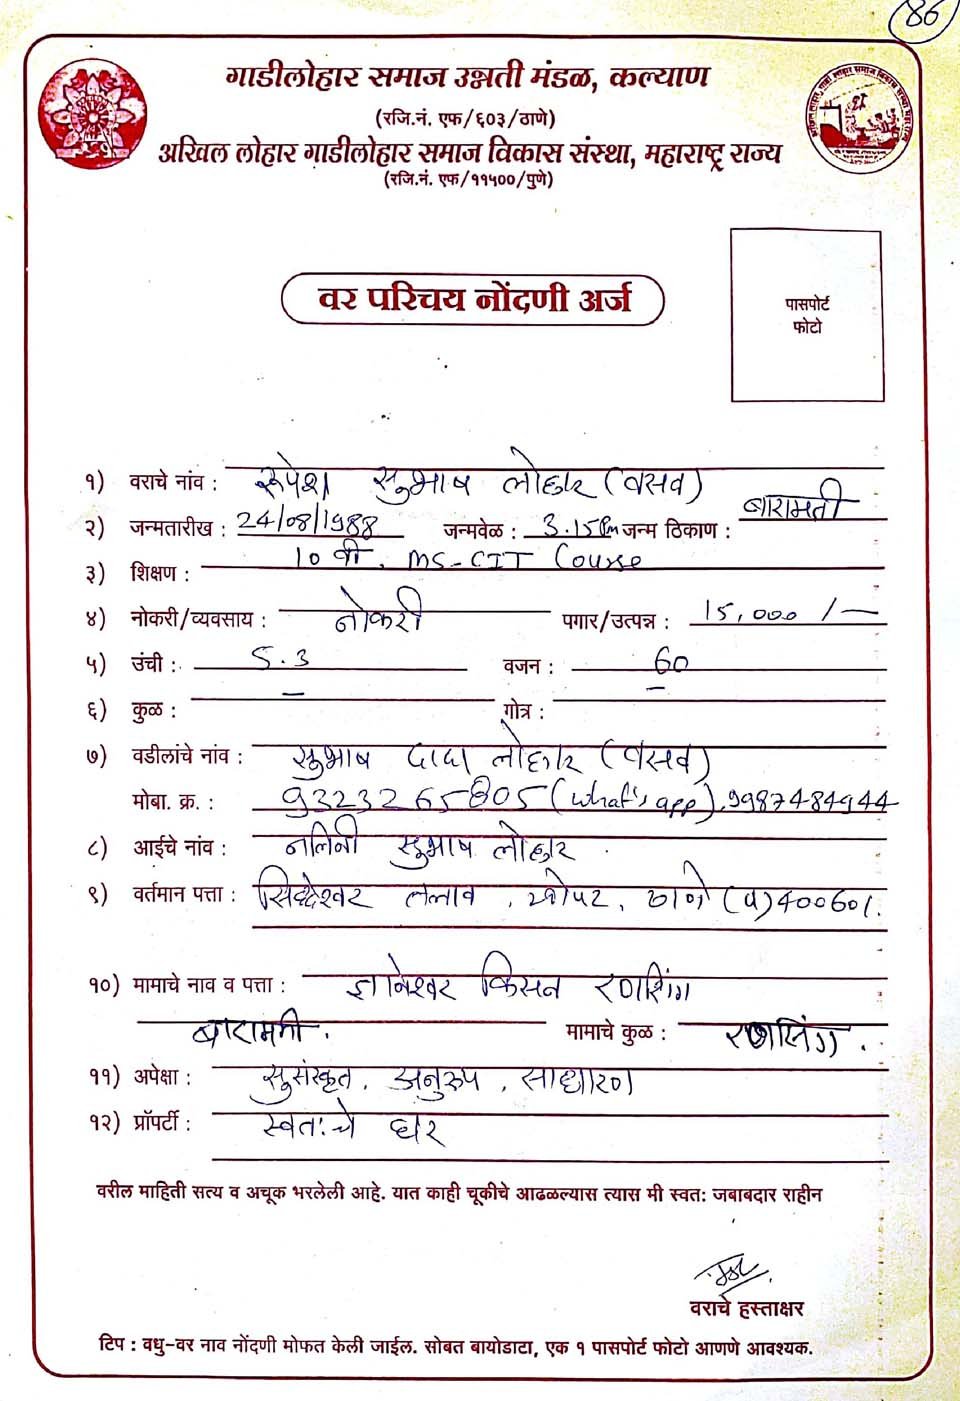 86
गाडीलोहार समाज उन्नती मंडळ, कल्याण
(रजि.नं. एफ/६०३/ठाणे)
अखिल लोहार गाडीलोहार समाज विकास संस्था, महाराष्ट्र राज्य
(रजि.नं. एफ/११५००/पुणे)
वर परिचय नोंदणी अर्ज
पासपोर्ट
फोटो
१) वराचे नांव : रूपेश सुभाष लोहार (वसव)
२) जन्मतारीख : 24/08/1988 जन्मवेळ : 3.15 Pm जन्म ठिकाण : बारामती
३) शिक्षण : 10 वी, MS-CIT Course
४) नोकरी/व्यवसाय : नोकरी पगार/उत्पन्न : 15,000/-
५) उंची : 5.3 वजन : 60
६) कुळ : – गोत्र : –
७) वडीलांचे नांव : सुभाष दादा लोहार (वसव)
मोबा. क्र. : 9323265805 (what's app), 9987484944
८) आईचे नांव : नलिनी सुभाष लोहार.
९) वर्तमान पत्ता : सिध्देश्वर तलाव, खोपट, ठाणे (प) 400601.
१०) मामाचे नाव व पत्ता : ज्ञानेश्वर किसन रणसिंग
बारामती. मामाचे कुळ : रणसिंग.
११) अपेक्षा : सुसंस्कृत, अनुरूप, साधारण
१२) प्रॉपर्टी : स्वतःचे घर
वरील माहिती सत्य व अचूक भरलेली आहे. यात काही चूकीचे आढळल्यास त्यास मी स्वतः जबाबदार राहीन
वराचे हस्ताक्षर
टिप : वधु-वर नाव नोंदणी मोफत केली जाईल. सोबत बायोडाटा, एक १ पासपोर्ट फोटो आणणे आवश्यक.